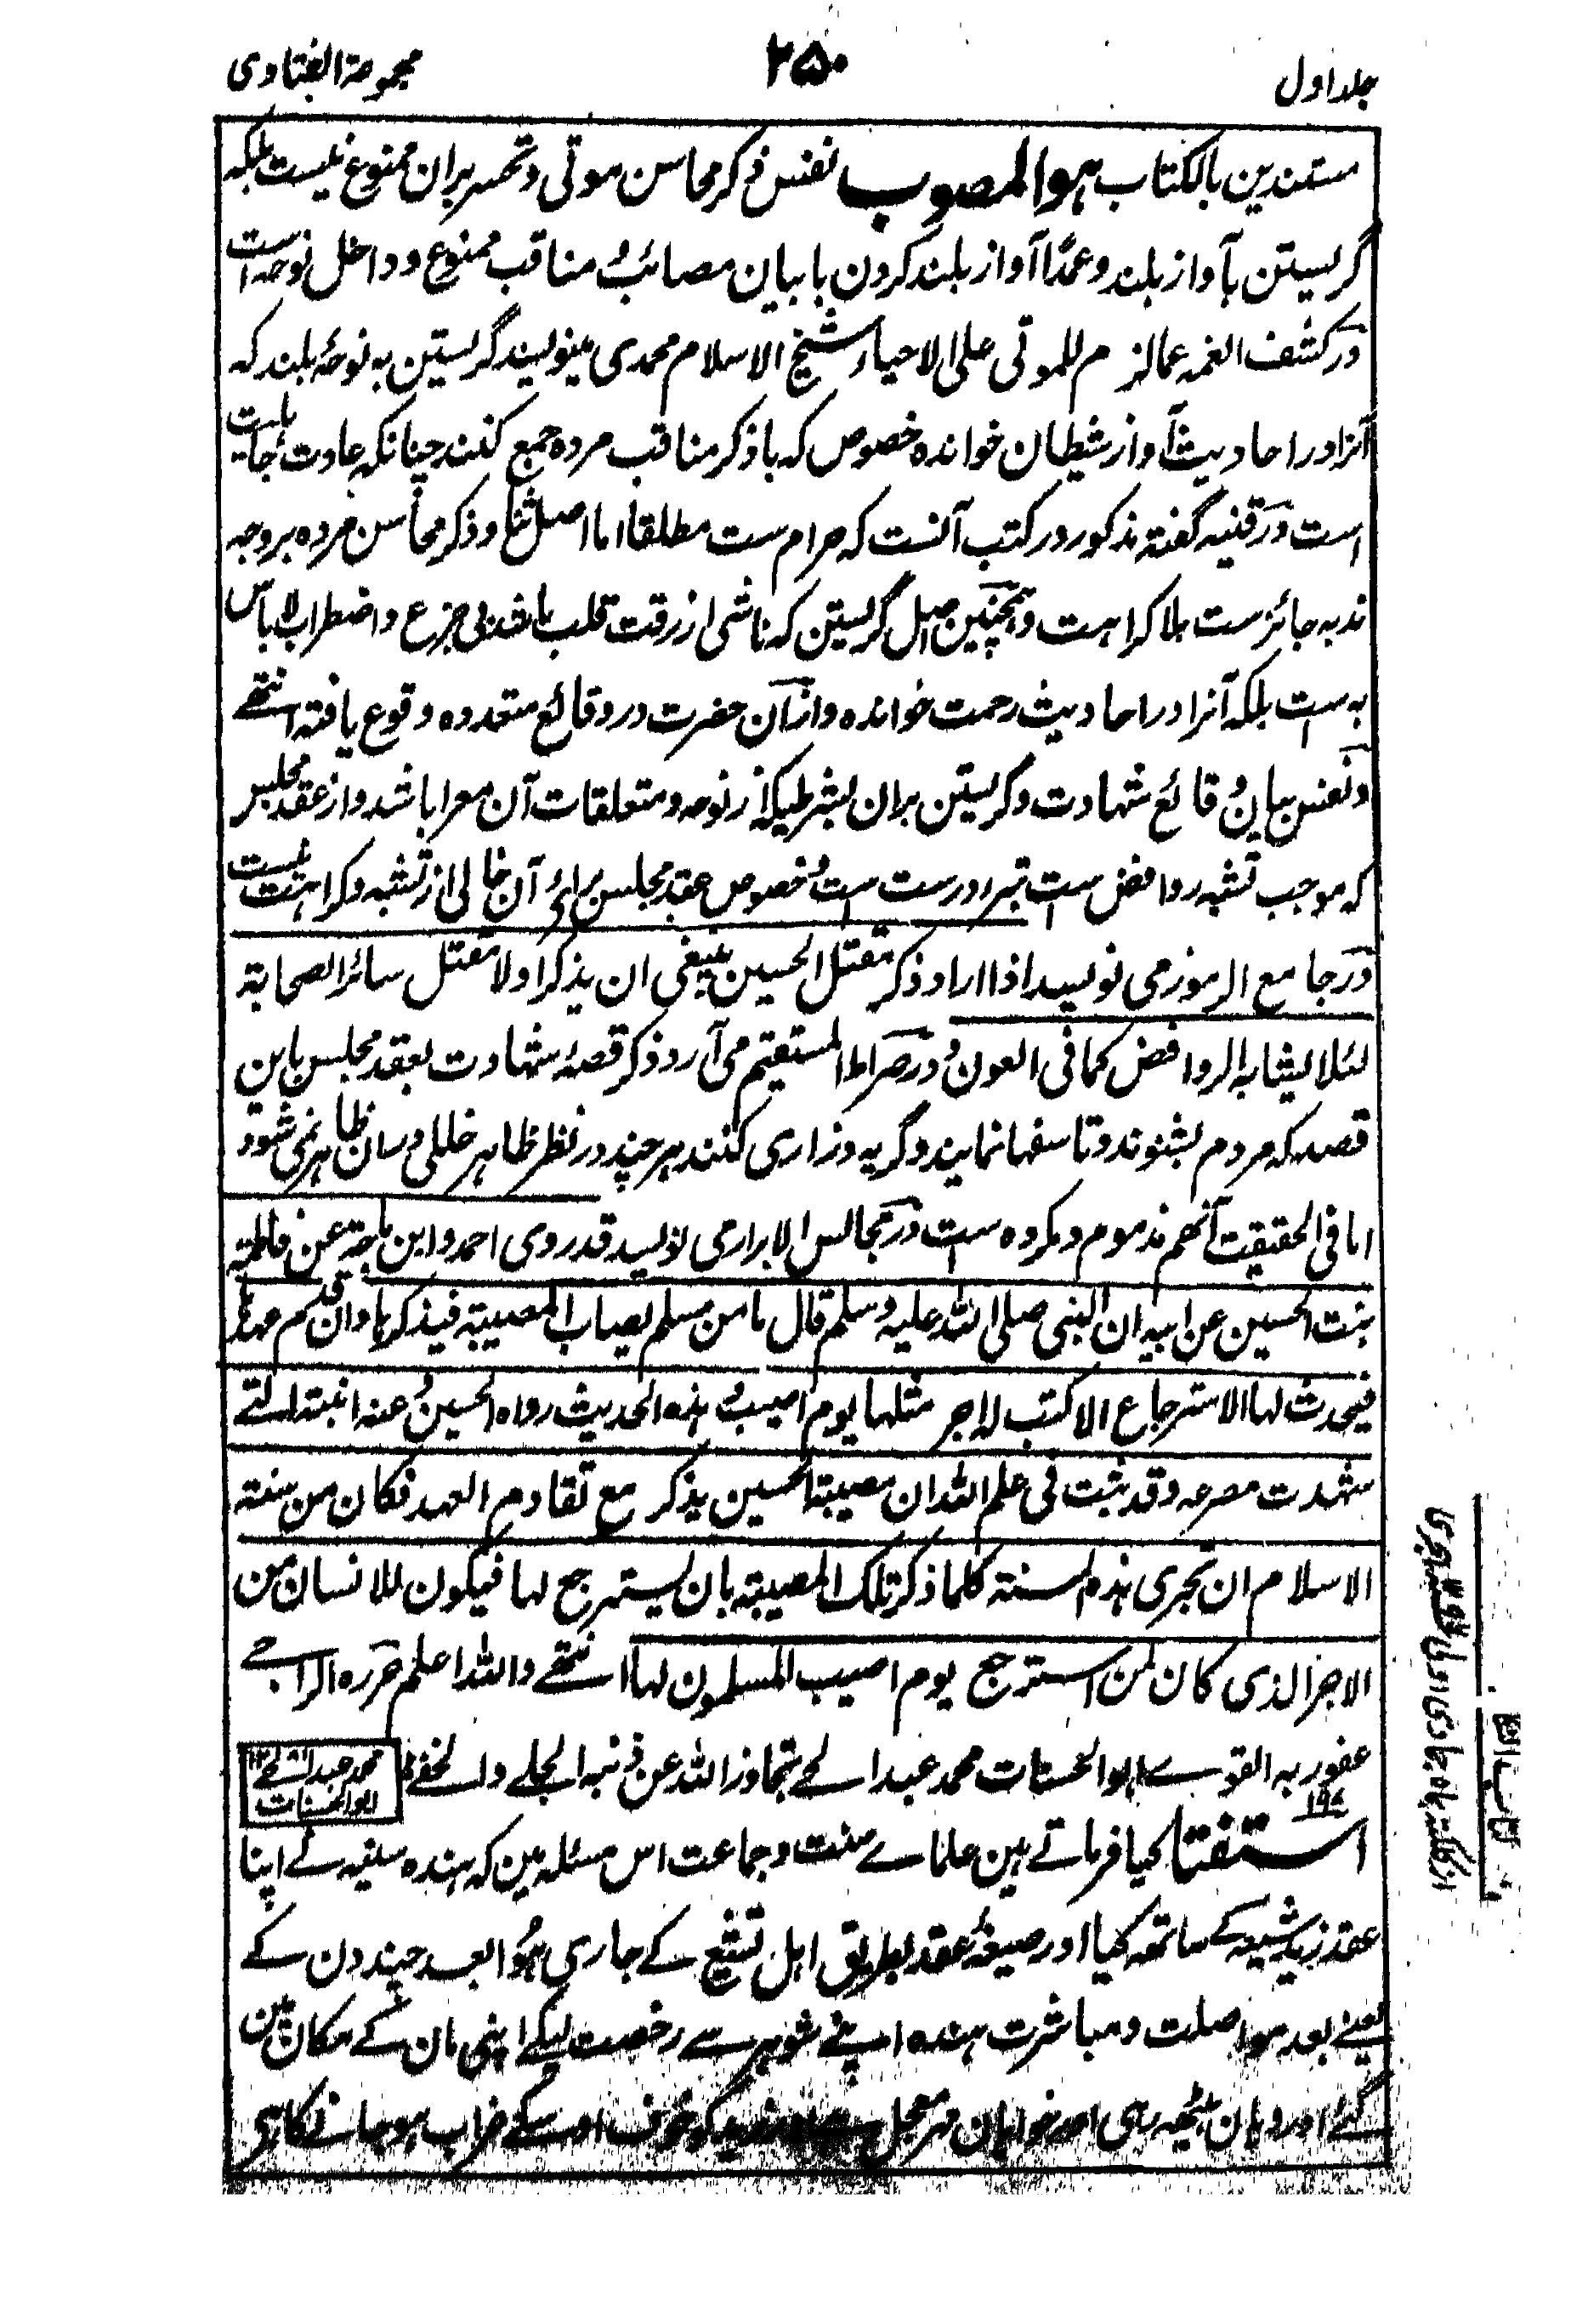 جلد اول
۲۵۰
مجموعة الفتاوی
مستندین بالکتاب ہو المصوب نفس ذکر محاسن موتی و تحسر بران ممنوع نیست بلکہ
گریستن بآواز بلند و عمداً آواز بلند کردن با بیان مصائب و مناقب ممنوع و داخل نوحہ است
در کشف الغمہ عما لزم للموتی علی الاحیاء شیخ الاسلام محمدی مینویسند گریستن بہ نوحۂ بلند کہ
آنرا در احادیث آواز شیطان خواندہ خصوص کہ با ذکر مناقب مردہ جمع کنند چنانکہ عادت جاہلیت
است در قنیہ گفتہ مذکور در کتب آنست کہ حرام ست مطلقا اما اصل ثنا و ذکر محاسن مردہ بر وجہ
ندبہ جائز ست بلا کراہت و ہمچنین اصل گریستن کہ ناشی از رقت قلب باشد بی جزع و اضطراب لا باس
بہ است بلکہ آنرا در احادیث رحمت خواندہ و از آن حضرت در وقائع متعددہ وقوع یافتہ انتہے
و نفس بیان وقائع شہادت و گریستن بران بشرطیکہ از نوحہ و متعلقات آن معرا باشد و از عقد مجلس
کہ موجب تشبہ روافض ست تبرہ درست ست و خصوص عقد مجلس برائے آن خالی از تشبہ و کراہت نیست
در جامع الرموز می نویسد اذا اراد ذکر مقتل الحسین ینبغی ان یذکر اولا مقتل سائر الصحابة
لئلا یشابہ الروافض کما فی العون و در صراط المستقیم می آرد ذکر قصۂ شہادت بعقد مجلس باین
قصد کہ مردم بشنوند و تاسفہا نمایند و گریہ و زاری کنند ہر چند در نظر ظاہر خللی در ان ظاہر نمی شود
اما فی الحقیقت آنہم مذموم و مکروہ ست در مجالس الابرار می نویسد قد روی احمد و ابن ماجة عن فاطمة
بنت الحسین عن ابیہ ان النبی صلی اللہ علیہ وسلم قال ما من مسلم یصاب المصیبة فیذکرہا وان قدم عہدہا
فیحدث لہا الاسترجاع الا کتب لہ اجر مثلہا یوم اصیب و ہذہ الحدیث رواہ الحسین و عنہ ابنتہ التے
شہدت مصرعہ وقد ثبت فی علم اللہ ان مصیبة الحسین یذکر مع تقادم العہد فکان من سنة
الاسلام ان تجری ہذہ السنة کلما ذکر تلک المصیبة بان یسترجع لہا فیکون للانسان من
الاجر الذی کان لمن استرجع یوم اصیب المسلمون لہا انتہے واللہ اعلم حررہ الراجے
عفو ربہ القوے ابو الحسنات محمد عبد الحے تجاوز اللہ عن ذنبہ الجلے والخفے
محمد عبد الحے ابو الحسنات
۱۹۷
استفتا کیا فرماتے ہین علماے سنت و جماعت اس مسئلہ مین کہ ہندہ سنیہ نے اپنا
عقد زید شیعہ کے ساتھہ کیا اور صیغۂ عقد بطریق اہل تشیع کے جاری ہوا بعد چند دن کے
یعنے بعد مواصلت و مباشرت ہندہ اپنے شوہر سے رخصت لیکے اپنی مان کے مکان مین
گئے اور وہان بیٹھہ رہی اور خواہان مہر معجل زید کو خوف اوسکے خراب ہو جانے کا ہی